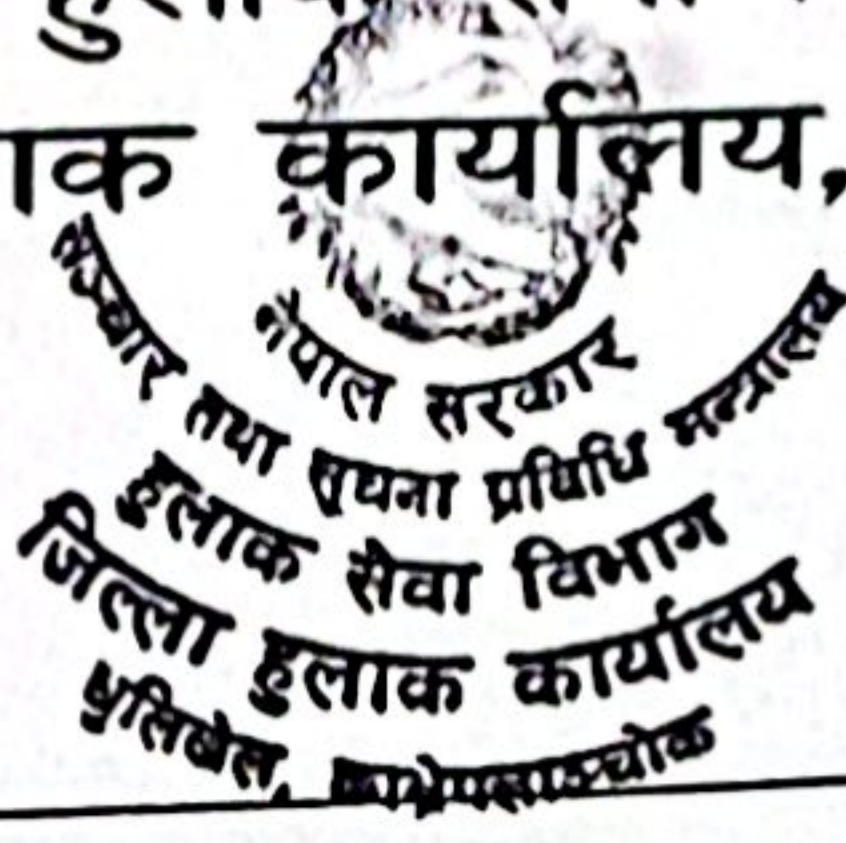 ाक कार्यालय,
नेपाल सरकार
सञ्चार तथा सूचना प्रविधि मन्त्रालय
हुलाक सेवा विभाग
जिल्ला हुलाक कार्यालय
धुलिखेल, काभ्रेपलाञ्चोक